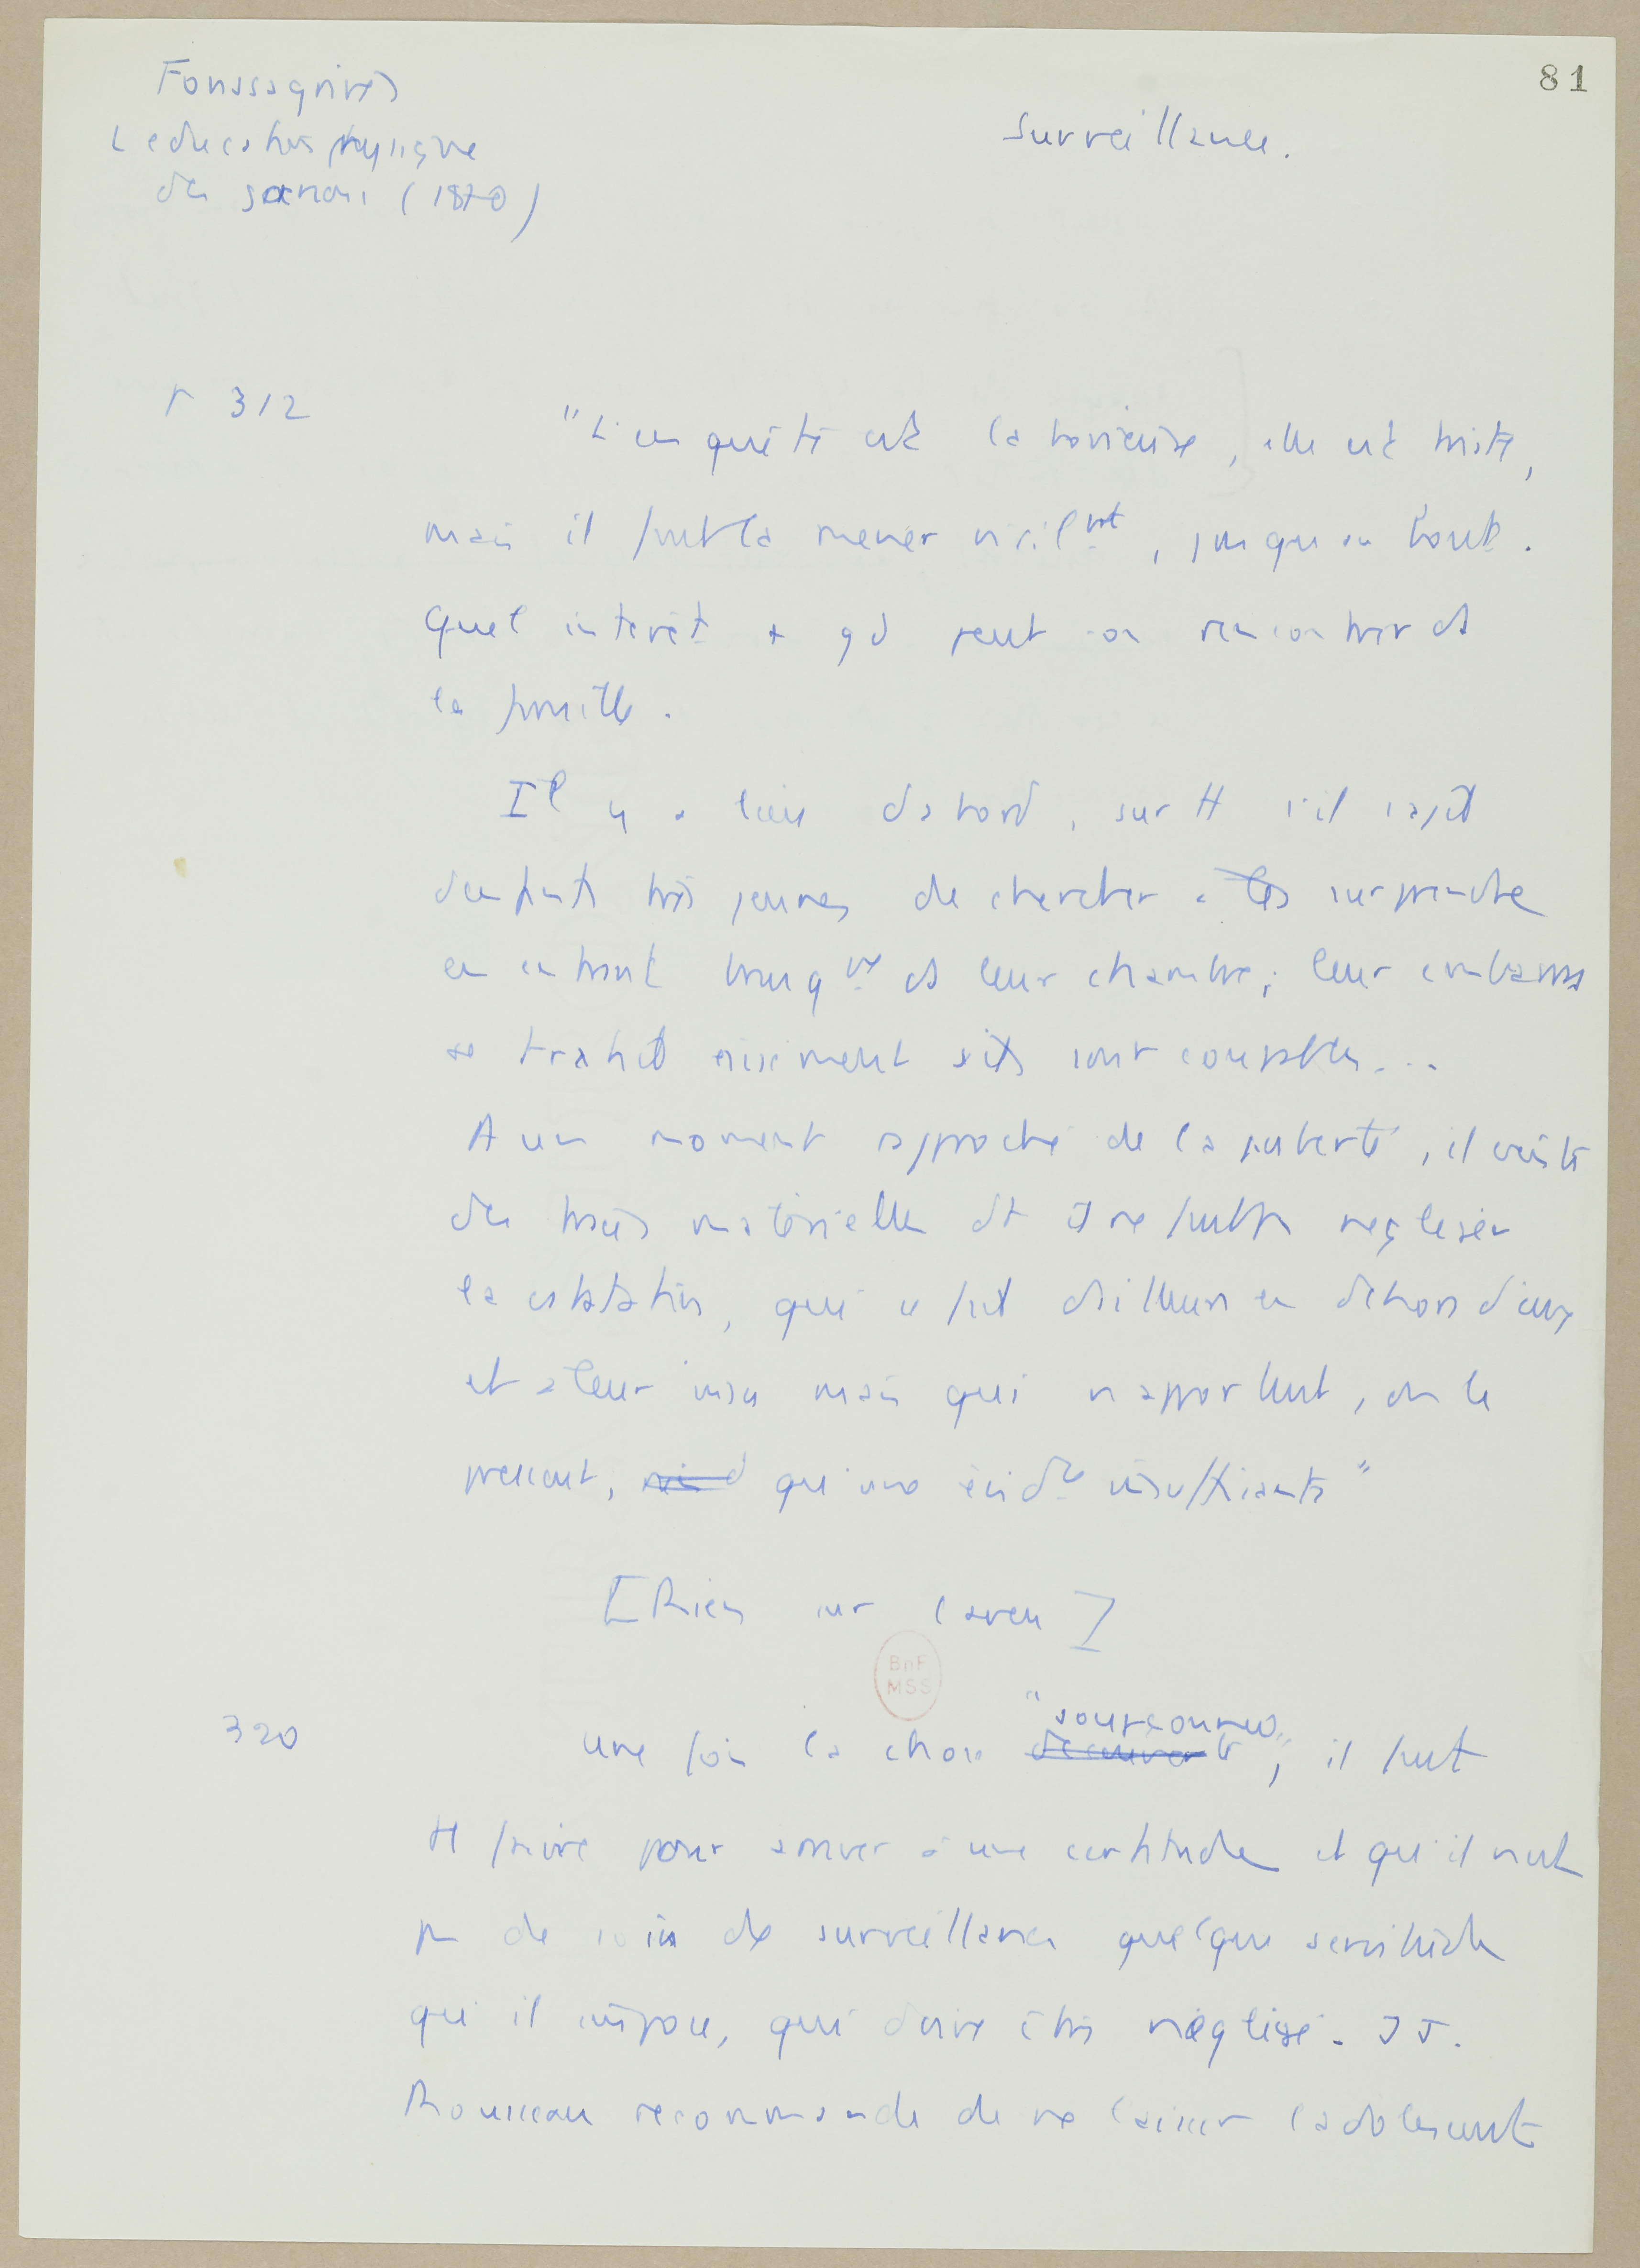 81
Fonssagrives
L education physique
des garçons (1870)
Surveillance.
p 312
"L'enquête est laborieuse, elle est triste,
mais il faut la mener viril.mt, jusqu'au bout.
Quel intérêt + gd peut-on rencontrer ds
la famille.
Il y a lieu dabord, sur tt s'il s'agit
denfants très jeunes de chercher à les surprendre
en entrant brusq.mt ds leur chambre; leur embarras
se trahit aisément s'ils sont coupables...
A un moment approché de la puberté, il existe
des traces matérielles dt il ne faut pas negliger
la cstatation, qui se fait dailleurs en dehors d'eux
et à leur insu mais qui n'apportent, on le
pressent, qu'une évid.ce insuffisante"
[Rien sur l'aveu]
320
une fois la chose "soupçonnée", il faut
tt faire pour arriver à une certitude et qu'il n'est
pas de soin de surveillance quelque servitude
qu'il impose, qui doive être négligé. J J.
Rousseau recommande de ne laisser ladolescent
BnF
MSS